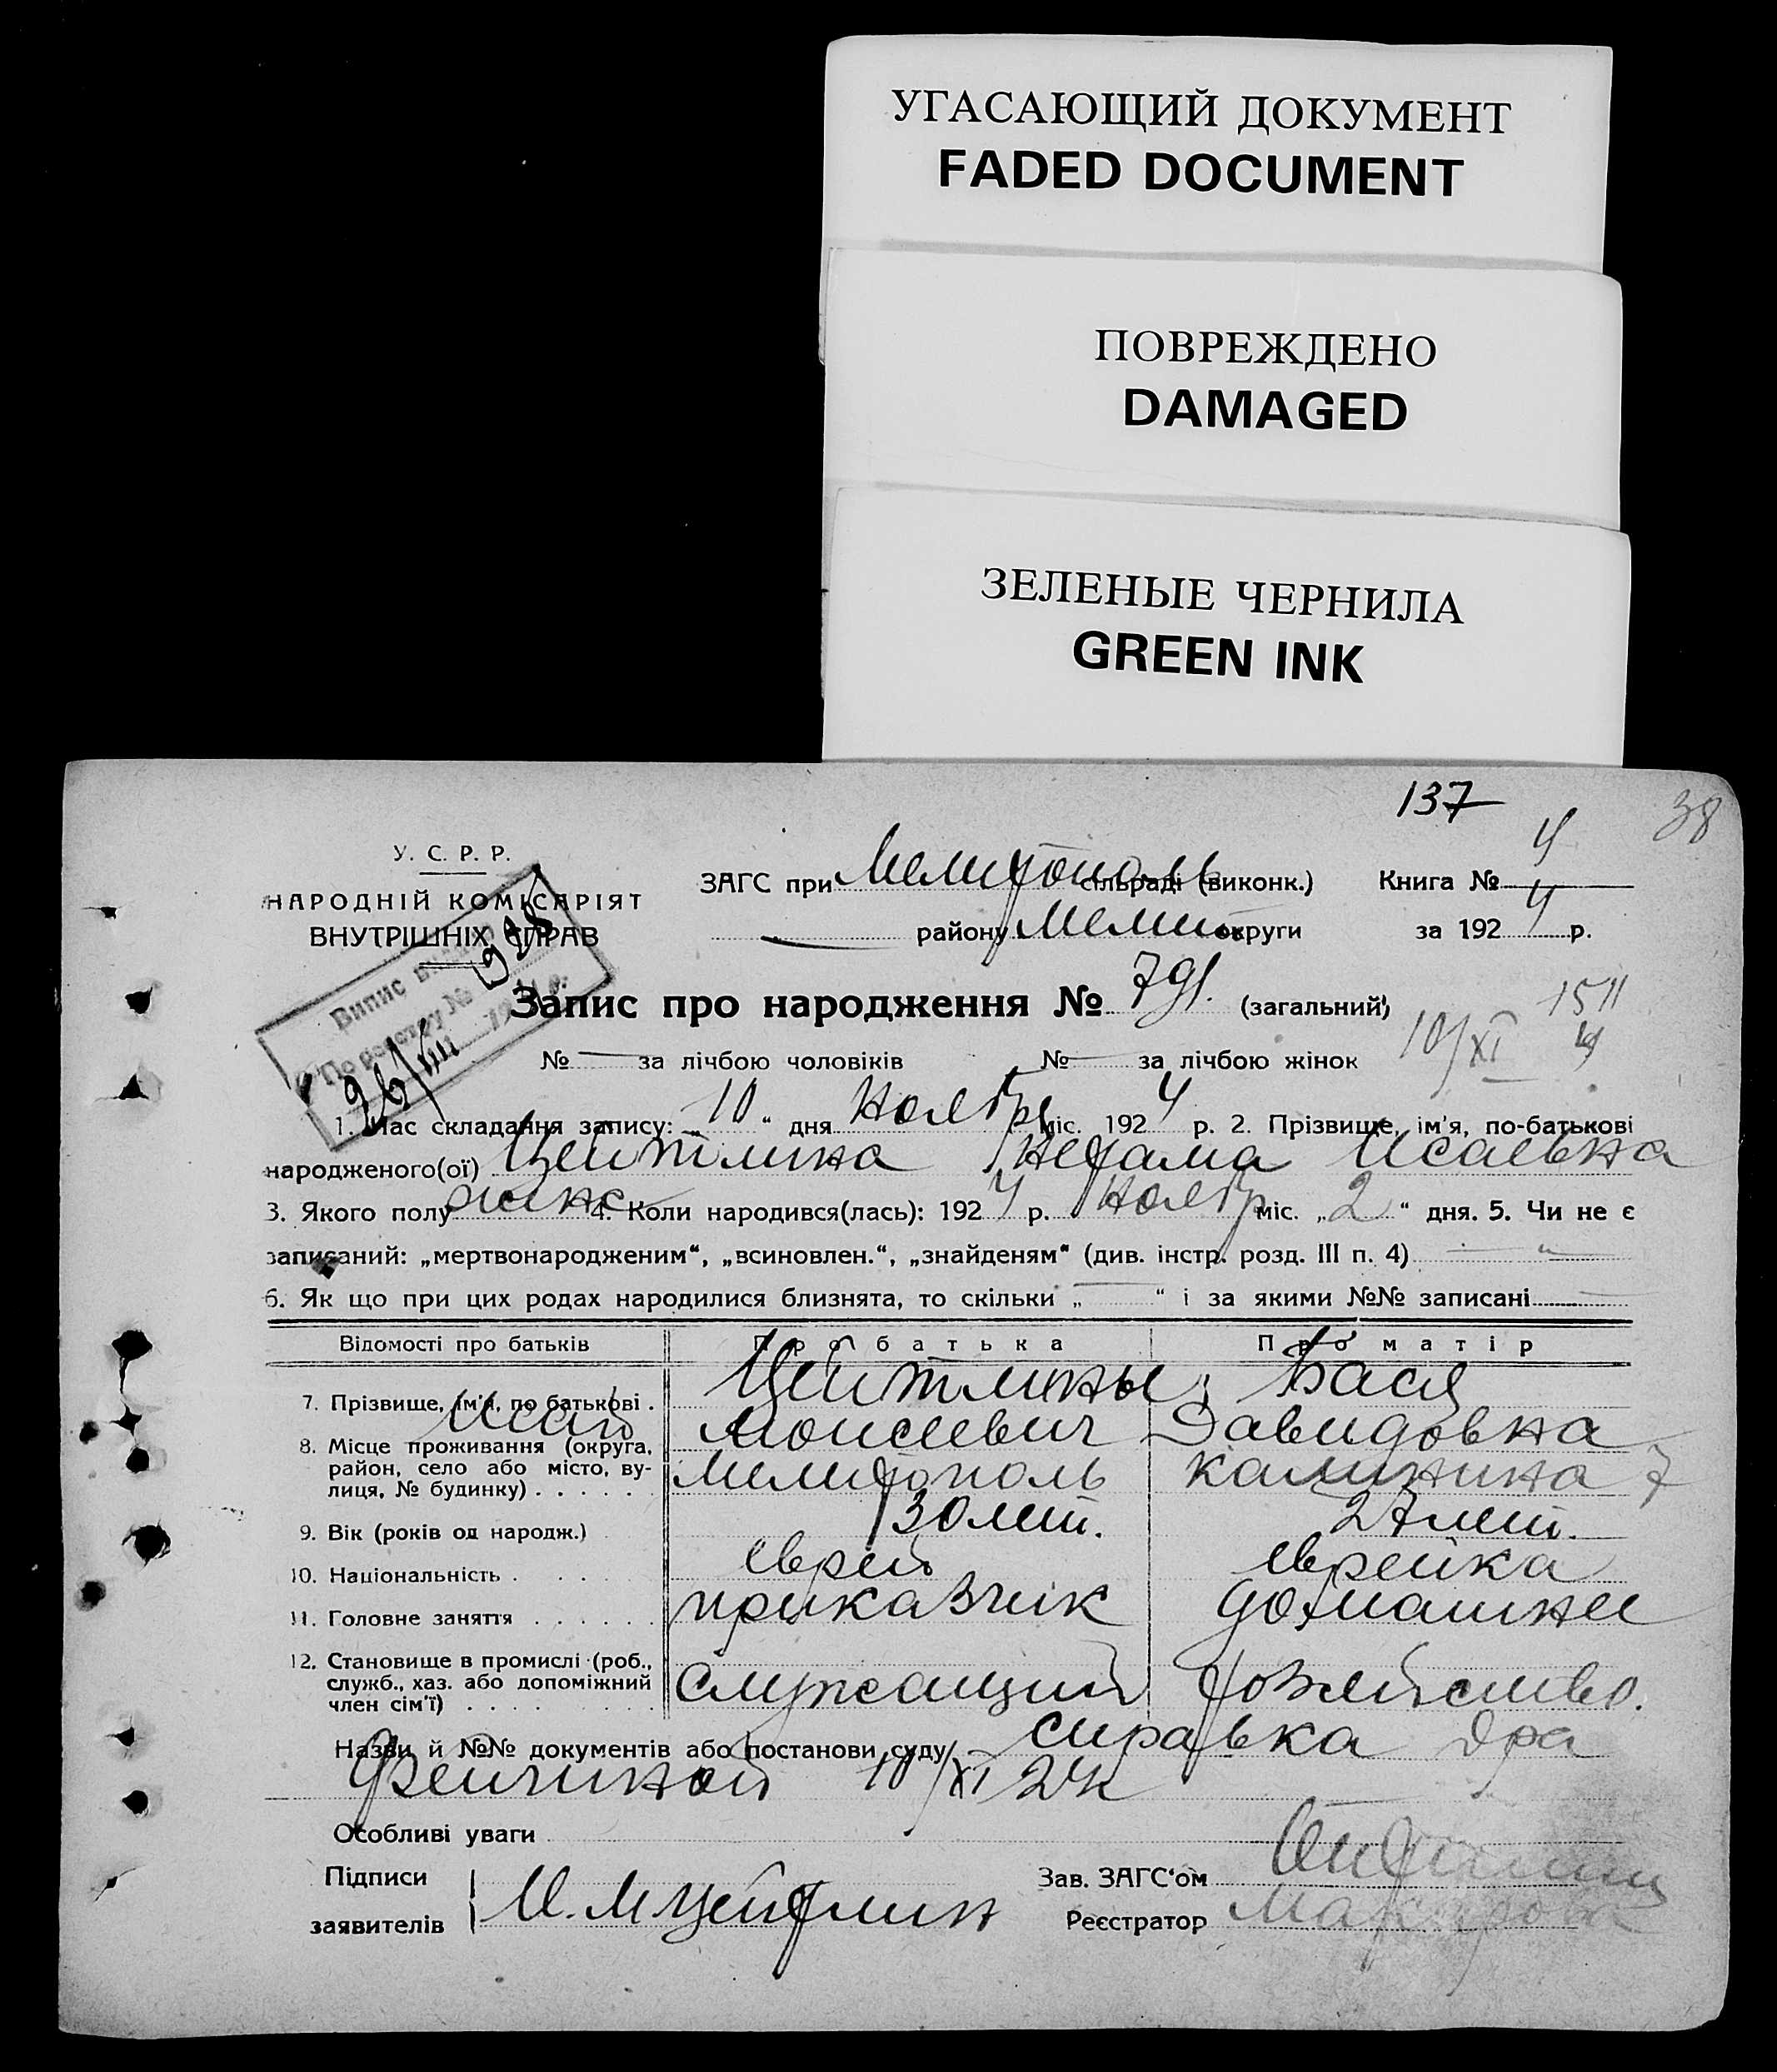 УГАСАЮЩИЙ ДОКУМЕНТ
FADED DOCUMENT
ПОВРЕЖДЕНО
DAMAGED
ЗЕЛЕНЫЕ ЧЕРНИЛА
GREEN INK
137
38
У. С. Р. Р.
НАРОДНІЙ КОМІСАРІЯТ
ВНУТРІШНІХ СПРАВ
ЗАГС при Мелитополь сільраді (виконк.) Книга № 4
району Мелит округи за 1924 р.
Випис
По реєстру №
Запис про народження № 791. (загальний)
1511
10/XI
№ — за лічбою чоловіків № — за лічбою жінок
1. Час складання запису: „10“ дня Ноябр міс. 1924 р. 2. Прізвище, ім'я, по-батькові
народженого(ої) Цейтлина Нехама Исаевна
3. Якого полу жинс 4. Коли народився(лась): 1924 р. Ноябр міс. „2“ дня. 5. Чи не є
записаний: „мертвонародженим“, „всиновлен.“, „знайденям“ (див. інстр. розд. III п. 4) — „ —
6. Як що при цих родах народилися близнята, то скільки „ — “ і за якими №№ записані —
Відомості про батьків Про батька Про матір
7. Прізвище, ім'я, по батькові . Цейтлины, Бася
Исай Моисеевич Давидовна
8. Місце проживання (округа, район, село або місто, вулиця, № будинку) . . . . . . Мелитополь Калинина 7
9. Вік (років од народж.) 30 лет. 27 лет.
10. Національність . . . . еврей еврейка
11. Головне заняття . . . . . . приказчик домашнее
12. Становище в промислі (роб., служб., хаз. або допоміжний член сім'ї) . . . . . . . служащий хозяйство.
Назви й №№ документів або постанови суду справка Д-ра
Фейгиной 10/XI 24
Особливі уваги
Підписи
заявителів И. М Цейтлин
Зав. ЗАГС'ом
Реєстратор